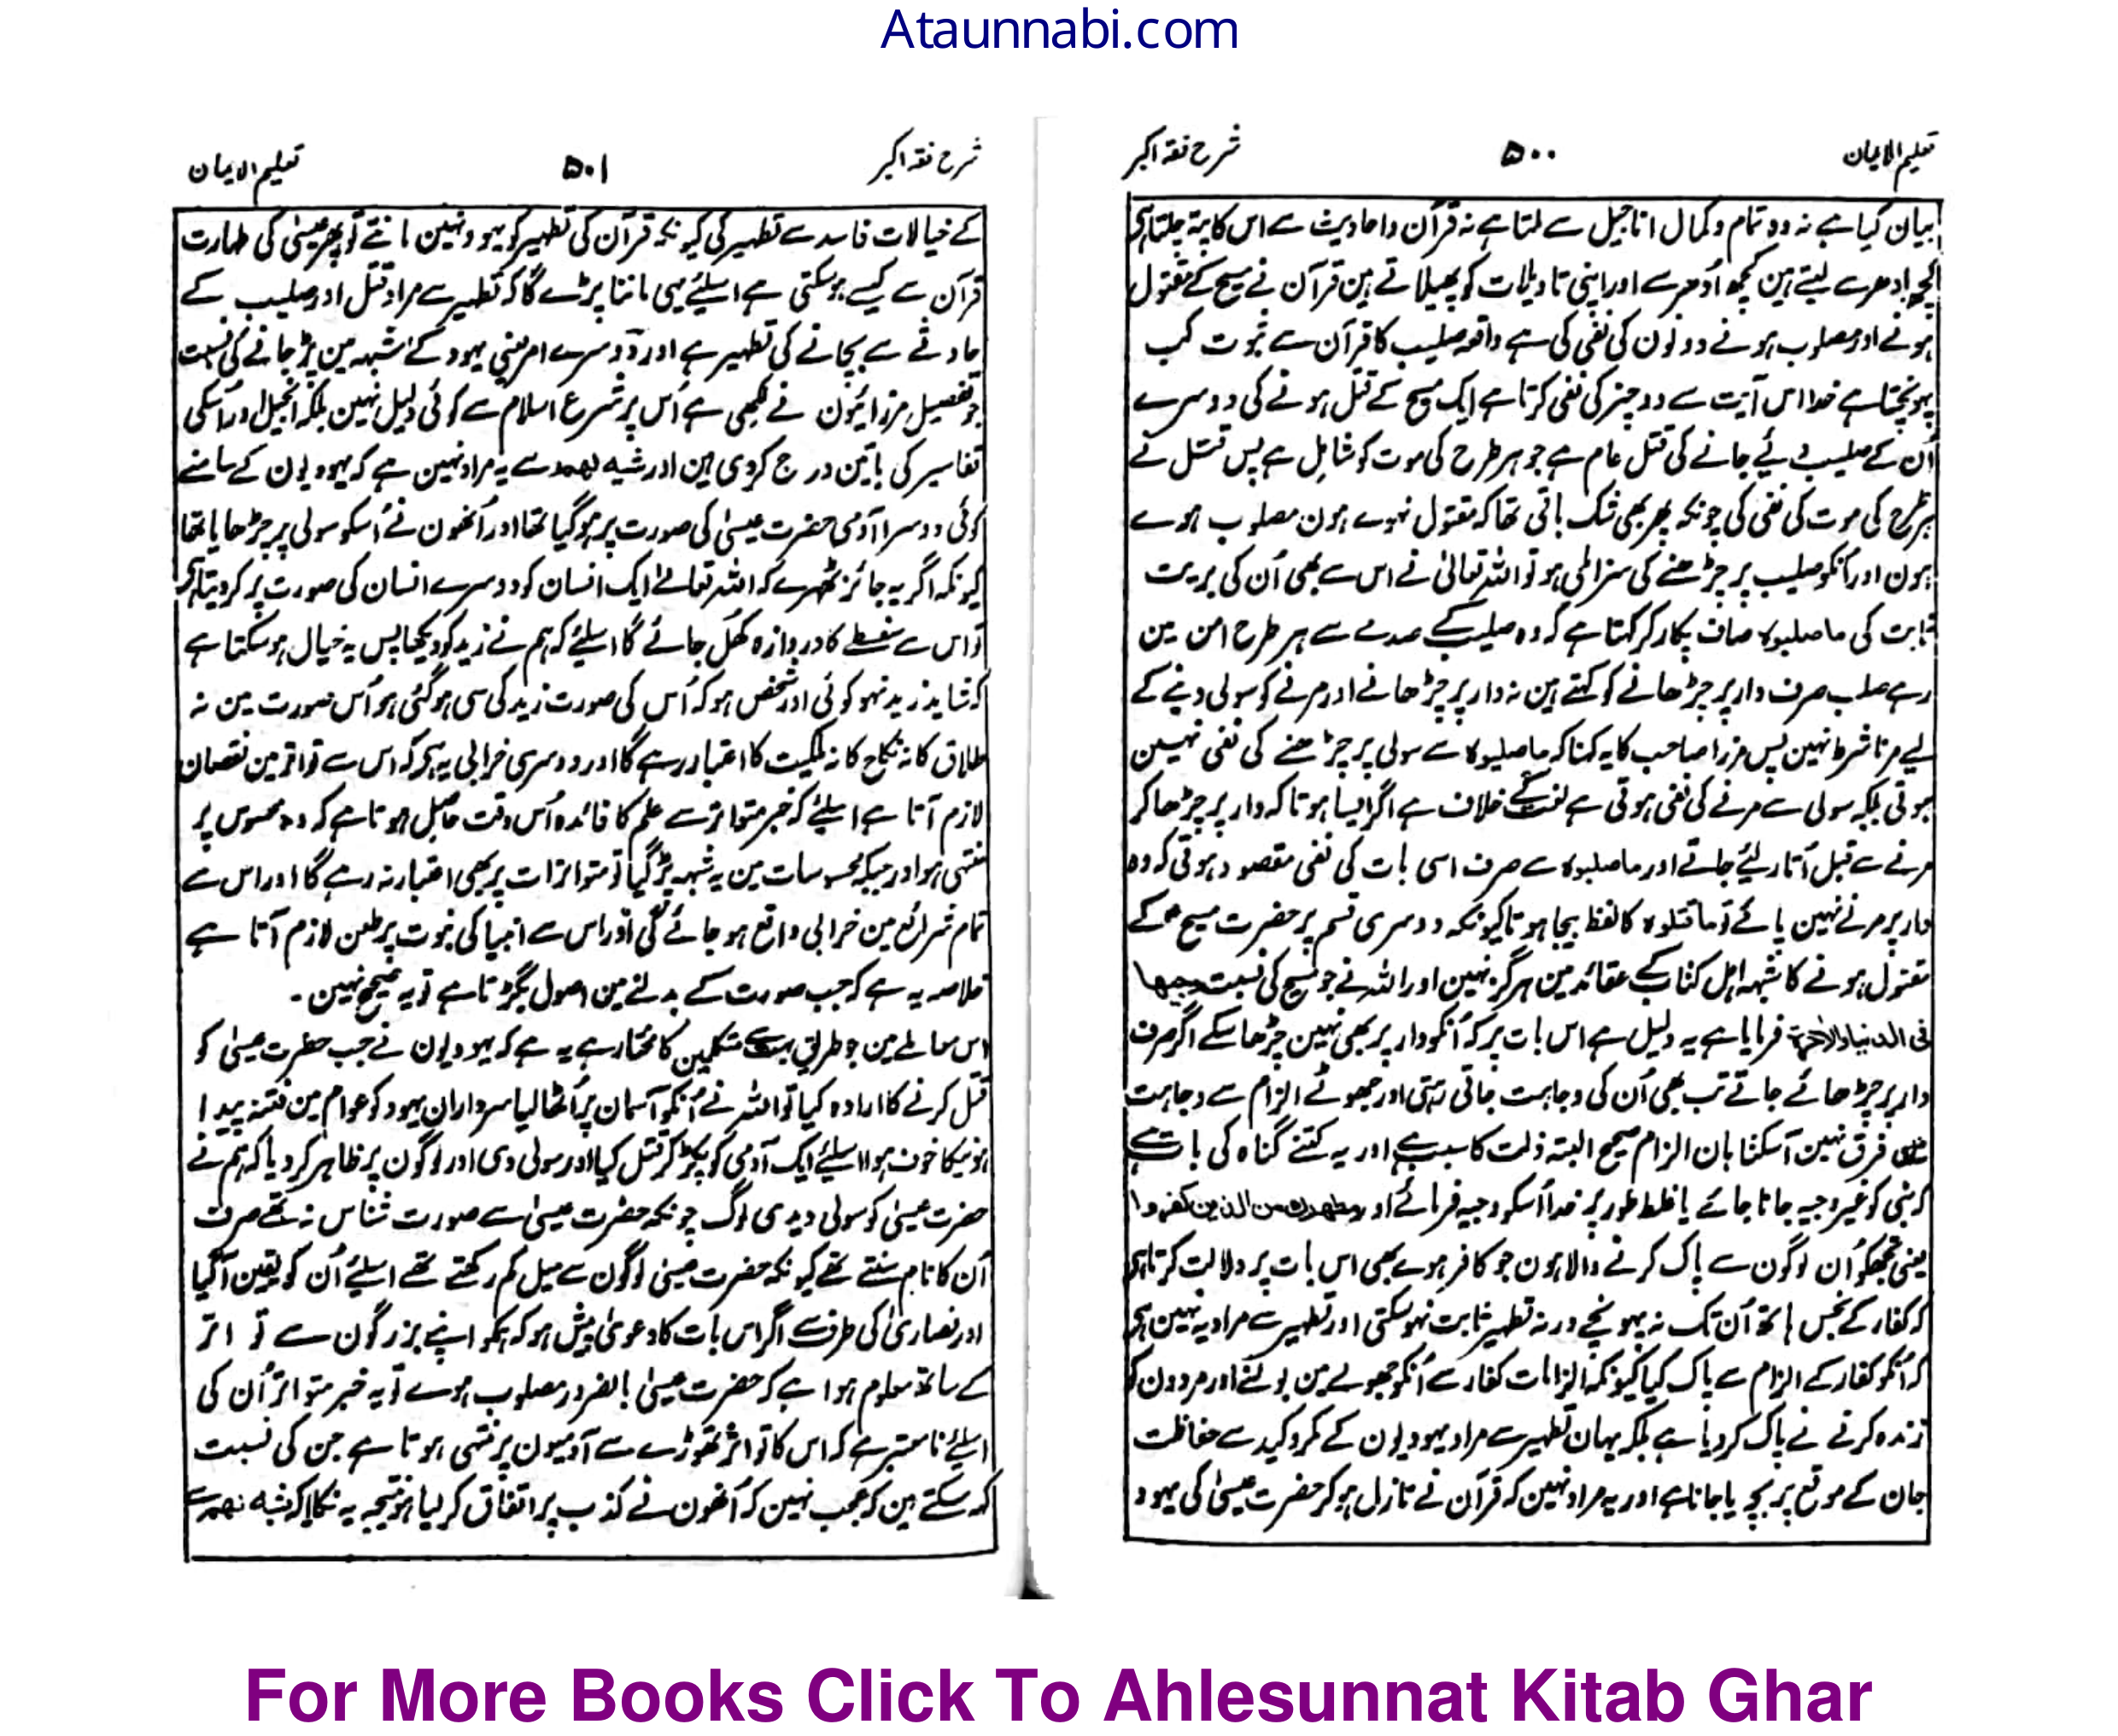 Ataunnabi.com
تعلیم الایمان
۵۰۰
شرح فقہ اکبر
بیان کیا ہے نہ وہ تمام و کمال اناجیل سے ملتا ہے نہ قرآن و احادیث سے اس کا پتہ چلتا ہی
کچھ ادھر سے لیتے ہین کچھ اُدھر سے اور اپنی تاویلات کو پھیلاتے ہین قرآن نے مسیح کے مقتول
ہونے اور مصلوب ہونے دونون کی نفی کی ہے واقعہ صلیب کا قرآن سے ثبوت کب
پہونچتا ہے خدا اس آیت سے دو چیز کی نفی کرتا ہے ایک مسیح کے قتل ہونے کی دوسرے
اُن کے صلیب دیئے جانے کی قتل عام ہے جو ہر طرح کی موت کو شامل ہے پس قتل نے
ہر طرح کی موت کی نفی کی چونکہ پھر بھی شک باقی تھا کہ مقتول نہوے ہون مصلوب ہوے
ہون اور اُنکو صلیب پر چڑھنے کی سزا ملی ہو تو اللہ تعالیٰ نے اس سے بھی اُن کی بریت
ثابت کی ماصلبوہ صاف پکار کر کہتا ہے کہ وہ صلیب کے صدمے سے ہر طرح امن مین
رہے صلب صرف دار پر چڑھانے کو کہتے ہین نہ دار پر چڑھانے اور مرنے کو سولی دینے کے
لیے مرنا شرط نہین پس مرزا صاحب کا یہ کہنا کہ ماصلبوہ سے سولی پر چڑھنے کی نفی نہین
ہوتی بلکہ سولی سے مرنے کی نفی ہوتی ہے لغت کے خلاف ہے اگر ایسا ہوتا کہ دار پر چڑھا کر
مرنے سے قبل اُتار لیئے جاتے اور ماصلبوہ سے صرف اسی بات کی نفی مقصود ہوتی کہ وہ
دار پر مرنے نہین پائے تو ماقتلوہ کا لفظ بیجا ہوتا کیونکہ دوسری قسم پر حضرت مسیح کے
مقتول ہونے کا شبہہ اہل کتاب کے عقائد مین ہرگز نہین اور اللہ نے جو مسیح کی نسبت وجیھا
فی الدنیا والاخرۃ فرمایا ہے یہ دلیل ہے اس بات پر کہ اُنکو دار پر بھی نہین چڑھا سکے اگر صرف
دار پر چڑھائے جاتے تب بھی اُن کی وجاہت جاتی رہتی اور جھوٹے الزام سے وجاہت
مین فرق نہین آسکتا ہان الزام صحیح البتہ ذلت کا سبب ہے اور یہ کتنے گناہ کی بات ہے
کہ نبی کو غیر وجیہ جانا جائے یا غلط طور پر خدا اُسکو وجیہ فرمائے اور ومطھرک من الذین کفروا
یعنی تجھکو اُن لوگون سے پاک کرنے والا ہون جو کافر ہوے بھی اس بات پر دلالت کرتا ہی
کہ کفار کے نجس ہاتھ اُن تک نہ پہونچے ورنہ تطہیر ثابت نہوسکتی اور تطہیر سے مراد یہ نہین ہی
کہ اُنکو کفار کے الزام سے پاک کیا کیونکہ الزامات کفار سے اُنکو جھولے مین بولنے اور مردون کو
زندہ کرنے نے پاک کر دیا ہے بلکہ یہان تطہیر سے مراد یہودیون کے مکر و کید سے حفاظت
جان کے موقع پر بچہ یا جانا ہے اور یہ مراد نہین کہ قرآن نے نازل ہوکر حضرت عیسیٰ کی یہود
شرح فقہ اکبر
۵۰۱
تعلیم الایمان
کے خیالات فاسد سے تطہیر کی کیونکہ قرآن کی تطہیر کو یہود نہین مانتے تو پھر عیسیٰ کی طہارت
قرآن سے کیسے ہوسکتی ہے اسلیئے یہی ماننا پڑے گا کہ تطہیر سے مراد قتل اور صلیب کے
حادثے سے بچانے کی تطہیر ہے اور دوسرے امر یعنی یہود کے شبہہ مین پڑ جانے کی نسبت
جو تفصیل مرزائیون نے لکھی ہے اُس پر شرع اسلام سے کوئی دلیل نہین بلکہ انجیل اور اُسکی
تفاسیر کی باتین درج کردی ہین اور شبہ لھم سے یہ مراد نہین ہے کہ یہودیون کے سامنے
کوئی دوسرا آدمی حضرت عیسیٰ کی صورت پر ہوگیا تھا اور اُنھون نے اُسکو سولی پر چڑھایا تھا
کیونکہ اگر یہ جائز ٹھہرے کہ اللہ تعالےٰ ایک انسان کو دوسرے انسان کی صورت پر کر دیتا ہی
تو اس سے سفسطے کا دروازہ کھل جائے گا اسلیئے کہ ہم نے زید کو دیکھا پس یہ خیال ہوسکتا ہے
کہ شاید زید نہو کوئی اور شخص ہو کہ اُس کی صورت زید کی سی ہوگئی ہو اُس صورت مین نہ
طلاق کا نہ نکاح کا نہ ملکیت کا اعتبار رہے گا اور دوسری خرابی یہ ہی کہ اس سے تواتر مین نقصان
لازم آتا ہے اسلیئے کہ خبر متواتر سے علم کا فائدہ اُس وقت حاصل ہوتا ہے کہ وہ محسوس پر
منتہی ہو اور جبکہ محسوسات مین یہ شبہہ پڑگیا تو متواترات پر بھی اعتبار نہ رہے گا اور اس سے
تمام شرائع مین خرابی واقع ہوجائے گی اور اس سے انبیا کی نبوت پر طعن لازم آتا ہے
خلاصہ یہ ہے کہ جب صورت کے بدلنے مین اصول بگڑتا ہے تو یہ صحیح نہین۔
اس معاملے مین جو طریق بہت سے متکلمین کا مختار ہے یہ ہے کہ یہودیون نے جب حضرت عیسیٰ کو
قتل کرنے کا ارادہ کیا تو اللہ نے اُنکو آسمان پر اُٹھا لیا سرداران یہود کو عوام مین فتنہ پیدا
ہونیکا خوف ہوا اسلیئے ایک آدمی کو پکڑ کر قتل کیا اور سولی دی اور لوگون پر ظاہر کر دیا کہ ہم نے
حضرت عیسیٰ کو سولی دیدی لوگ چونکہ حضرت عیسیٰ سے صورت شناس نہ تھے صرف
اُن کا نام سنتے تھے کیونکہ حضرت عیسیٰ لوگون سے میل کم رکھتے تھے اسلیئے اُن کو یقین آگیا
اور نصاریٰ کی طرف سے اگر اس بات کا دعویٰ پیش ہو کہ ہمکو اپنے بزرگون سے تواتر
کے ساتھ معلوم ہوا ہے کہ حضرت عیسیٰ بالضرور مصلوب ہوے تو یہ خبر متواتر اُن کی
اسلیئے نامعتبر ہے کہ اس کا تواتر تھوڑے سے آدمیون پر منتہی ہوتا ہے جن کی نسبت
کہہ سکتے ہین کہ عجب نہین کہ اُنھون نے کذب پر اتفاق کر لیا ہو نتیجہ یہ نکلا کہ شبہ لھم سے
For More Books Click To Ahlesunnat Kitab Ghar